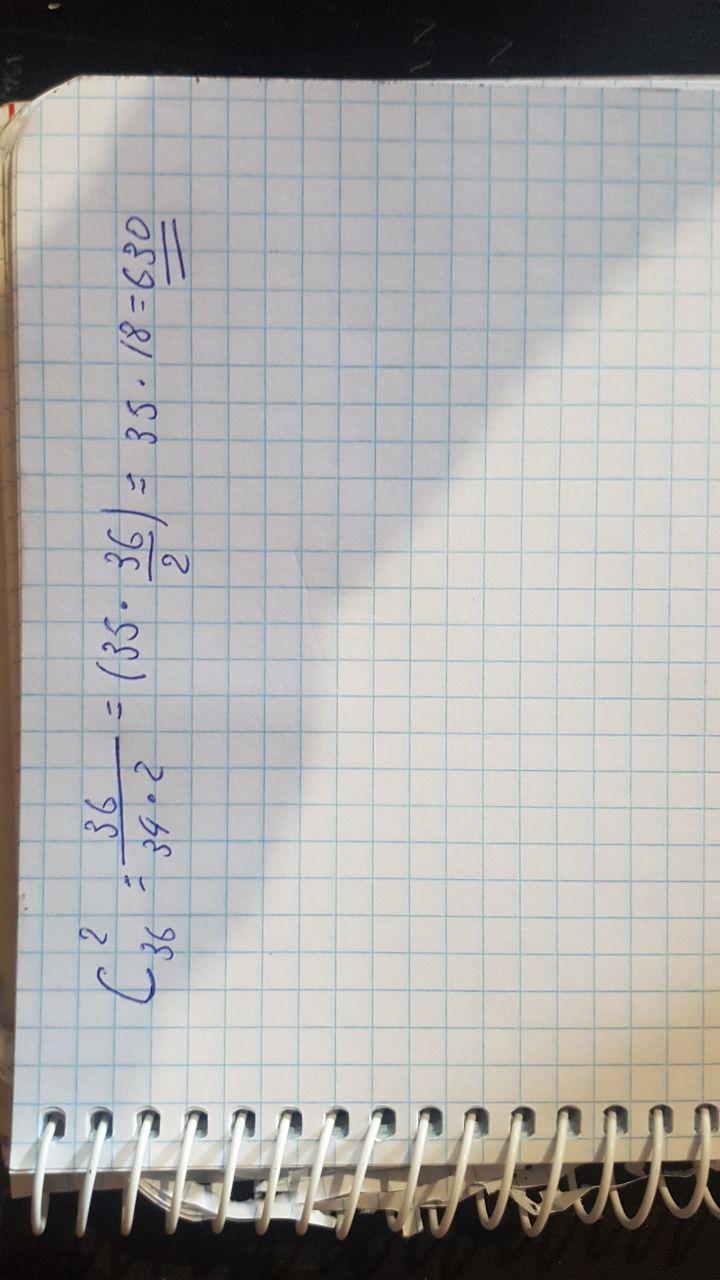 C²₃₆ = 36/34·2 = (35·36/2) = 35·18=630